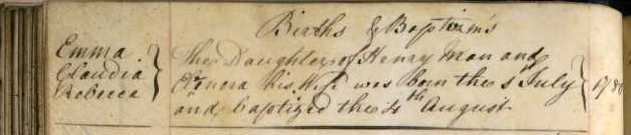 Births & Baptism's
Emma
Claudia
Rebecca
The Daughter of Henry Man and
Elenora his Wife was born the 8 July
and baptized the 4th August